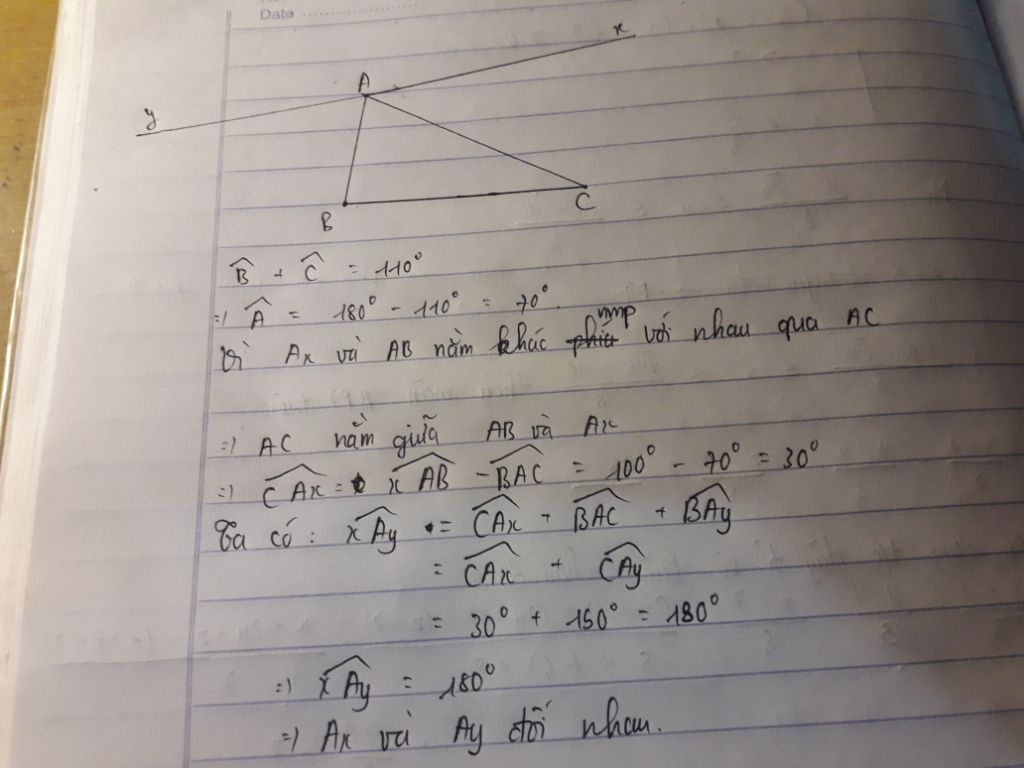 Date
x
A
y
B
C
B̂ + Ĉ = 110°
=) Â = 180° - 110° = 70°.
Vì Ax và AB nằm khác nmp với nhau qua AC
=) AC nằm giữa AB và Ax
=) CAx = xAB - BAC = 100° - 70° = 30°
Ta có : xAy = CAx + BAC + BAy
= CAx + CAy
= 30° + 150° = 180°
=) xAy = 180°
=) Ax và Ay đối nhau.